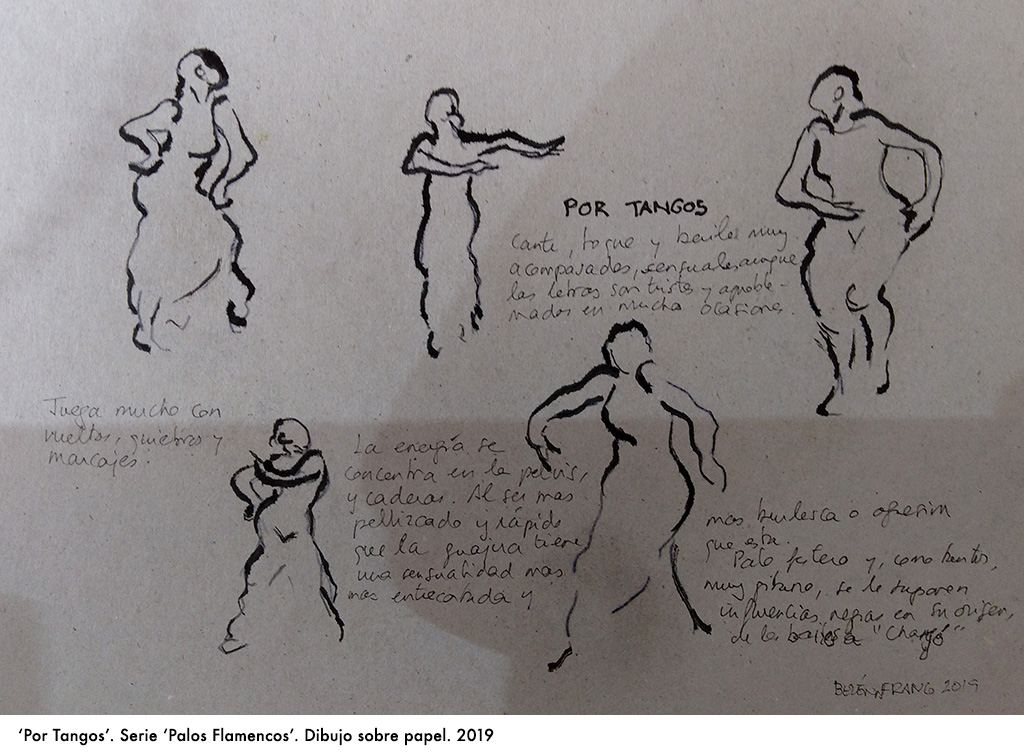 POR TANGOS
Cante, toque y bailes muy
acompasados, sensuales aunque
las letras son tristes y aproble-
mados en mucha ocasiones.
Juega mucho con
vueltas, quiebros y
marcajes.
La energía se
concentra en la pelvis,
y caderas. Al ser mas
pellizcado y rápido
que la guajira tiene
una sensualidad mas
mas entrecortada y
mas burlesca o
que esta.
Palo festero y, como tantos,
muy gitano, se le suponen
influencias negras en su origen,
de la "Changó"
BELÉN FRANG 2019
'Por Tangos'. Serie 'Palos Flamencos'. Dibujo sobre papel. 2019